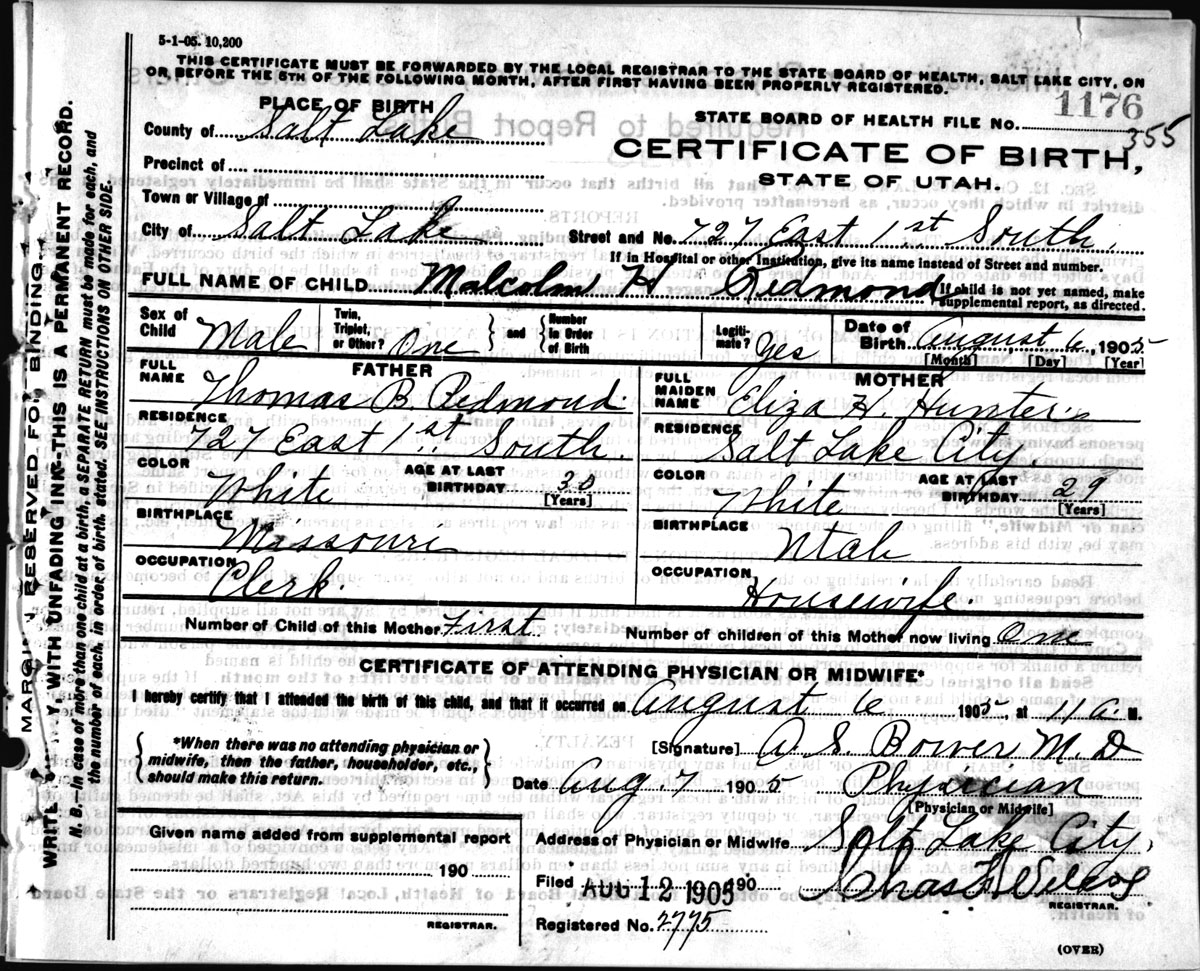 5-1-05. 10,200
THIS CERTIFICATE MUST BE FORWARDED BY THE LOCAL REGISTRAR TO THE STATE BOARD OF HEALTH, SALT LAKE CITY, ON
OR BEFORE THE 5TH OF THE FOLLOWING MONTH, AFTER FIRST HAVING BEEN PROPERLY REGISTERED.
PLACE OF BIRTH
STATE BOARD OF HEALTH FILE No. 1176
355
County of Salt Lake
CERTIFICATE OF BIRTH,
STATE OF UTAH.
Precinct of
Town or Village of
City of Salt Lake Street and No. 727 East 1st South.
If in Hospital or other Institution, give its name instead of Street and number.
FULL NAME OF CHILD Malcolm H Redmond If child is not yet named, make
supplemental report, as directed.
Sex of Child Male Twin, Triplet, or Other? One and Number in Order of Birth Legiti-mate? Yes Date of Birth August 6, 1905
[Month] [Day] [Year]
FATHER
FULL NAME Thomas B. Redmond
RESIDENCE 727 East 1st South.
COLOR White AGE AT LAST BIRTHDAY 30 [Years]
BIRTHPLACE Missouri
OCCUPATION Clerk.
MOTHER
FULL MAIDEN NAME Eliza H. Hunter
RESIDENCE Salt Lake City
COLOR White AGE AT LAST BIRTHDAY 29 [Years]
BIRTHPLACE Utah
OCCUPATION Housewife.
Number of Child of this Mother First Number of children of this Mother now living One
CERTIFICATE OF ATTENDING PHYSICIAN OR MIDWIFE*
I hereby certify that I attended the birth of this child, and that it occurred on August 6 1905, at 11 a. M.
*When there was no attending physician or
midwife, then the father, householder, etc.,
should make this return.
[Signature] S. Bower M.D
Date Aug 7 1905 Physician
[Physician or Midwife]
Given name added from supplemental report
190
REGISTRAR.
Address of Physician or Midwife Salt Lake City.
Filed AUG 12 1905 190 Chas
REGISTRAR.
Registered No. 2775
(OVER)
MARGIN RESERVED FOR BINDING
WRITE WITH UNFADING INK—THIS IS A PERMANENT RECORD.
N. B.—In case of more than one child at a birth, a SEPARATE RETURN must be made for each, and
the number of each, in order of birth, stated. SEE INSTRUCTIONS ON OTHER SIDE.